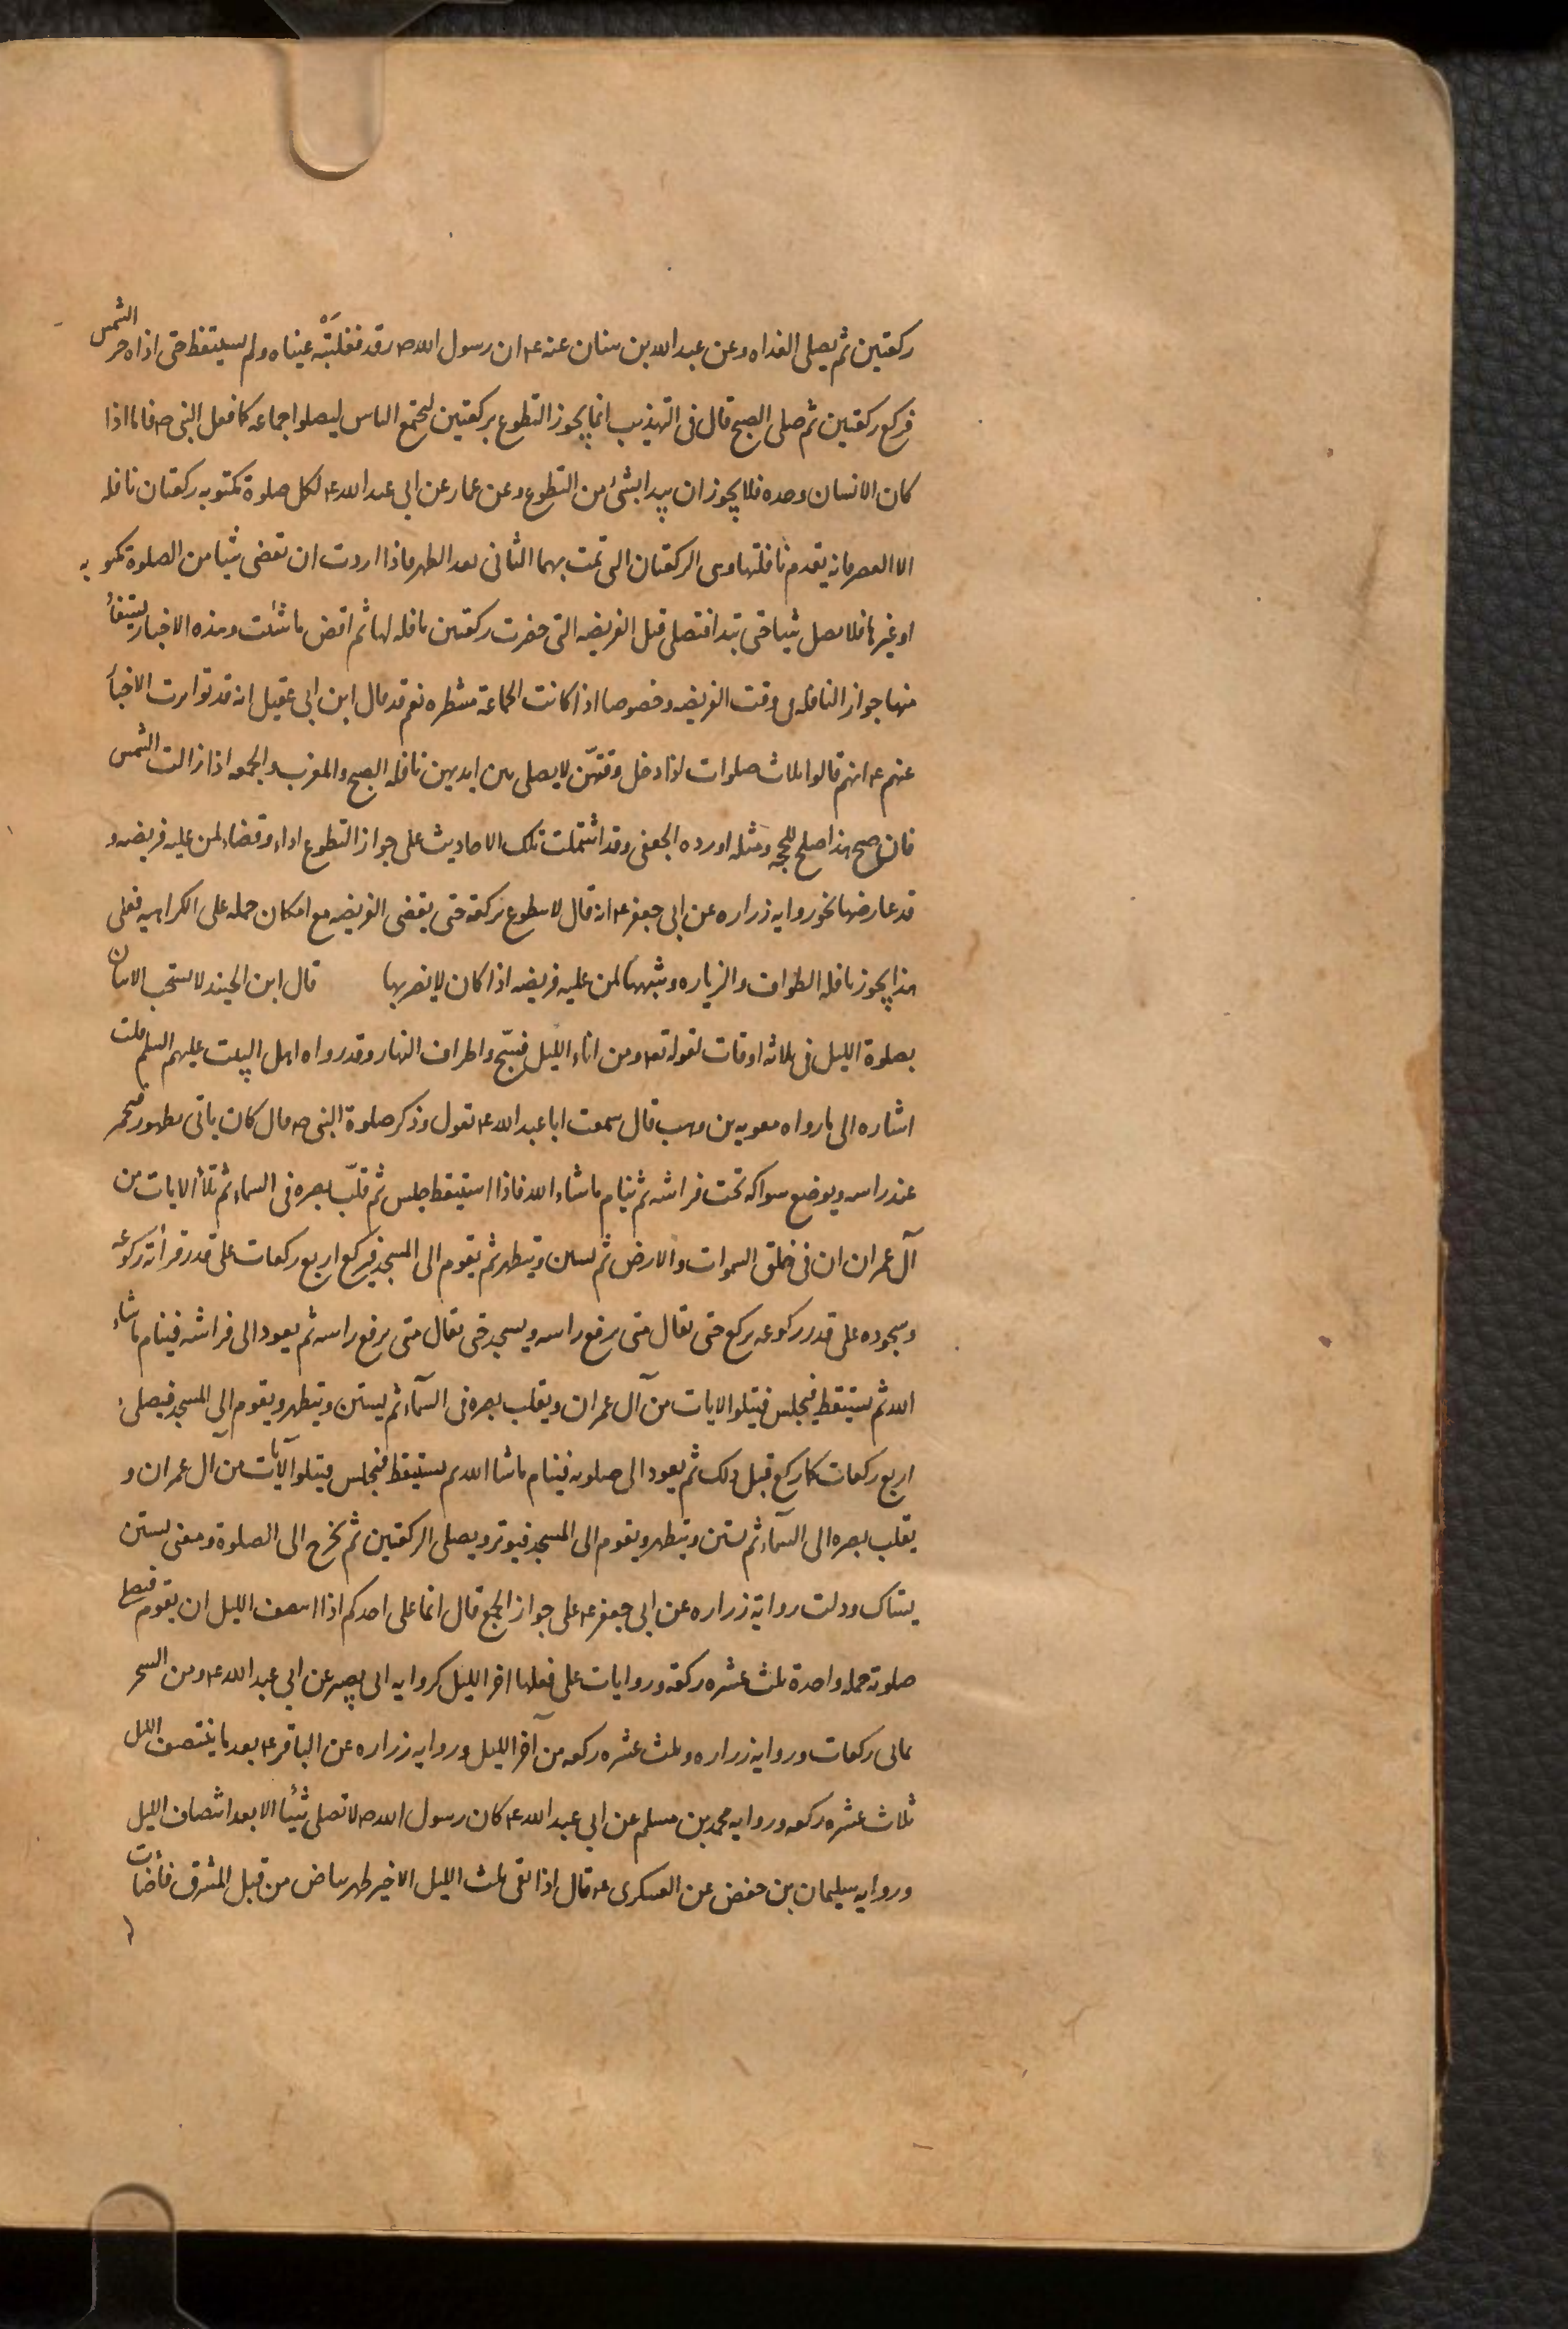 ركعتين ثم يصلى الغداه وعن عبد الله بن سنان عنه ع ان رسول الله ص رقد فغلبته عيناه ولم يستيقظ حتى اذاه حر الشمس
فركع ركعتين ثم صلى الصبح قال فى التهذيب انما يجوز التطوع بركعتين ليجتمع الناس ليصلوا جماعه كما فعل النبى ص فاما اذا
كان الانسان وحده فلا يجوز ان يبدا بشئ من التطوع وعن عمار عن ابى عبد الله ع لكل صلوة مكتوبه ركعتان نافله
الا العصر فانه يقدم نافلتها وهى الركعتان التى تمت بهما الثمانى بعد الظهر فاذا اردت ان تقضى شيا من الصلوة مكتوبه
او غيرها فلا تصل شيا حتى تبدا فتصلى قبل الفريضه التى حضرت ركعتين نافله لها ثم اقض ما شئت وهذه الاخبار يستفاد
منها جواز النافله فى وقت الفريضه وخصوصا اذا كانت الجماعة منتظره نعم قد قال ابن ابى عقيل انه قد تواترت الاخبار
عنهم ع انهم قالوا ثلاث صلوات اذا دخل وقتهنّ لا يصلى بين ايديهن نافله الصبح والمغرب والجمعه اذا زالت الشمس
فان صح هذا صلح للحجه ومثله اورده الجعفى وقد اشتملت تلك الاحاديث على جواز التطوع اداء وقضاء لمن عليه فريضه و
قد عارضها نحو روايه زراره عن ابى جعفر ع انه قال لا يتطوع بركعة حتى يقضى الفريضه مع امكان حمله على الكراهيه فعلى
هذا يجوز نافله الطواف والزياره وشبههما لمن عليه فريضه اذا كان لا يضر بها قال ابن الجنيد لا يستحب الاتيان
بصلوة الليل فى ثلاثه اوقات لقوله تع ومن اناء الليل فسبّح واطراف النهار وقد رواه اهل البيت عليهم السلم قلت
اشاره الى ما رواه معويه بن وهب قال سمعت ابا عبد الله ع يقول وذكر صلوة النبى ص قال كان ياتى بطهور فيخمر
عند راسه ويوضع سواكه تحت فراشه ثم ينام ما شاء الله فاذا استيقظ جلس ثم قلّب بصره فى السماء ثم تلا الايات من
آل عمران ان فى خلق السموات والارض ثم يستن ويتطهر ثم يقوم الى المسجد فيركع اربع ركعات على قدر قرائة ركوعه
وسجوده على قدر ركوعه يركع حتى يقال متى يرفع راسه ويسجد حتى يقال متى يرفع راسه ثم يعود الى فراشه فينام ما شاء
الله ثم يستيقظ فيجلس فيتلو الايات من آل عمران ويقلب بصره فى السمآء ثم يستن ويتطهر ويقوم الى المسجد فيصلى
اربع ركعات كما ركع قبل ذلك ثم يعود الى صلوته فينام ما شا الله ثم يستيقظ فيجلس فيتلو الآيات من ال عمران و
يقلب بصره الى السمآء ثم يستن ويتطهر ويقوم الى المسجد فيوتر ويصلى الركعتين ثم يخرج الى الصلوة ومعنى يستن
يستاك ودلت رواية زراره عن ابى جعفر ع على جواز الجمع قال انما على احدكم اذا انتصف الليل ان يقوم فيصلى
صلوته جمله واحدة ثلث عشره ركعة وروايات على فعلها اخر الليل كروايه ابى بصير عن ابى عبد الله ع ومن السحر
ثمانى ركعات وروايه زراره وثلث عشره ركعه من آخر الليل وروايه زراره عن الباقر ع بعد ما ينتصف الليل
ثلاث عشره ركعه وروايه محمد بن مسلم عن ابى عبد الله ع كان رسول الله ص لا تصلى شيئا الا بعد انتصاف الليل
وروايه سليمان بن حفص عن العسكرى ع قال اذا بقى ثلث الليل الاخير ظهر بياض من قبل المشرق فأضات